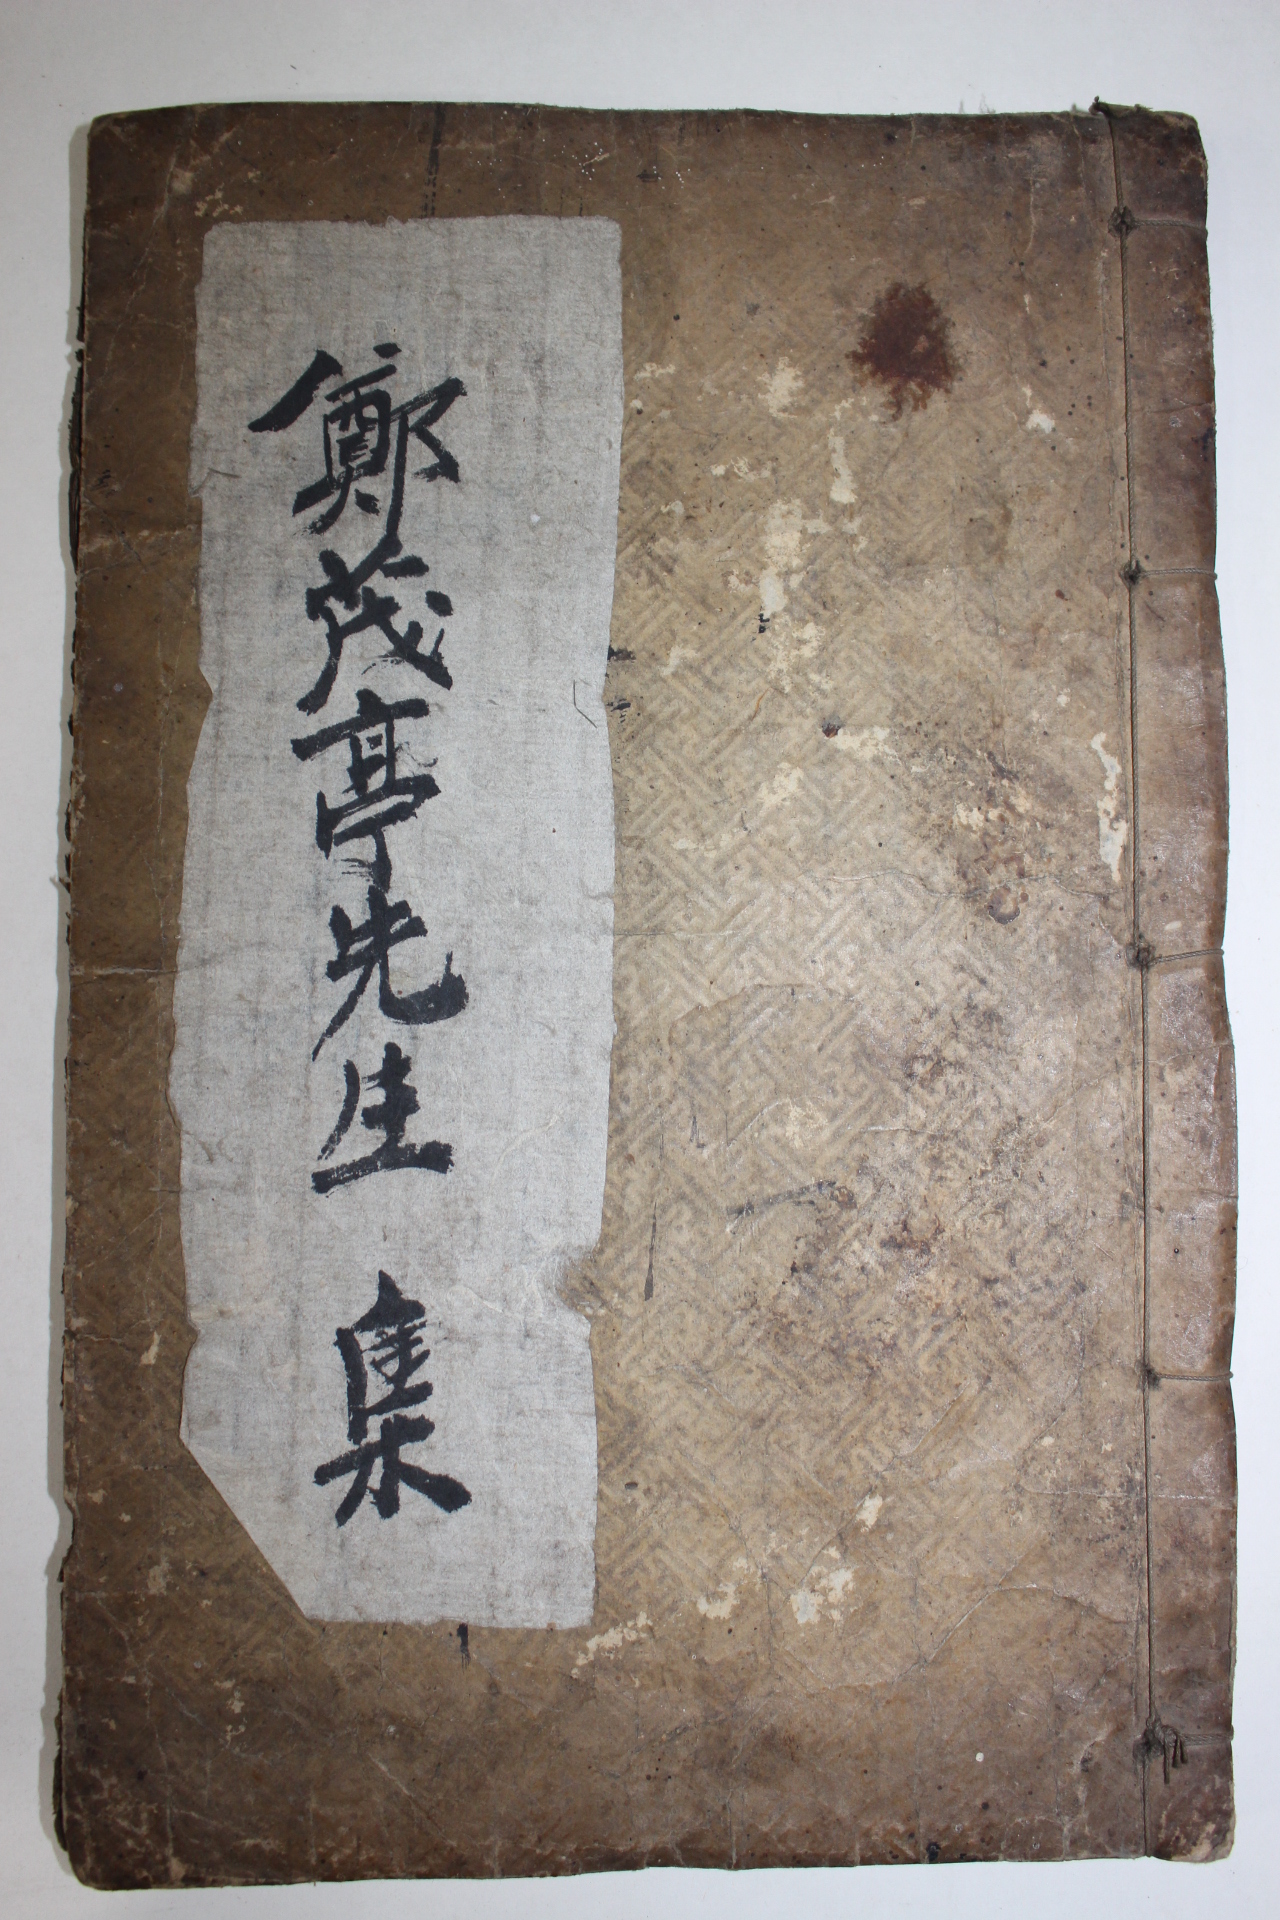 鄭茂亭先生集